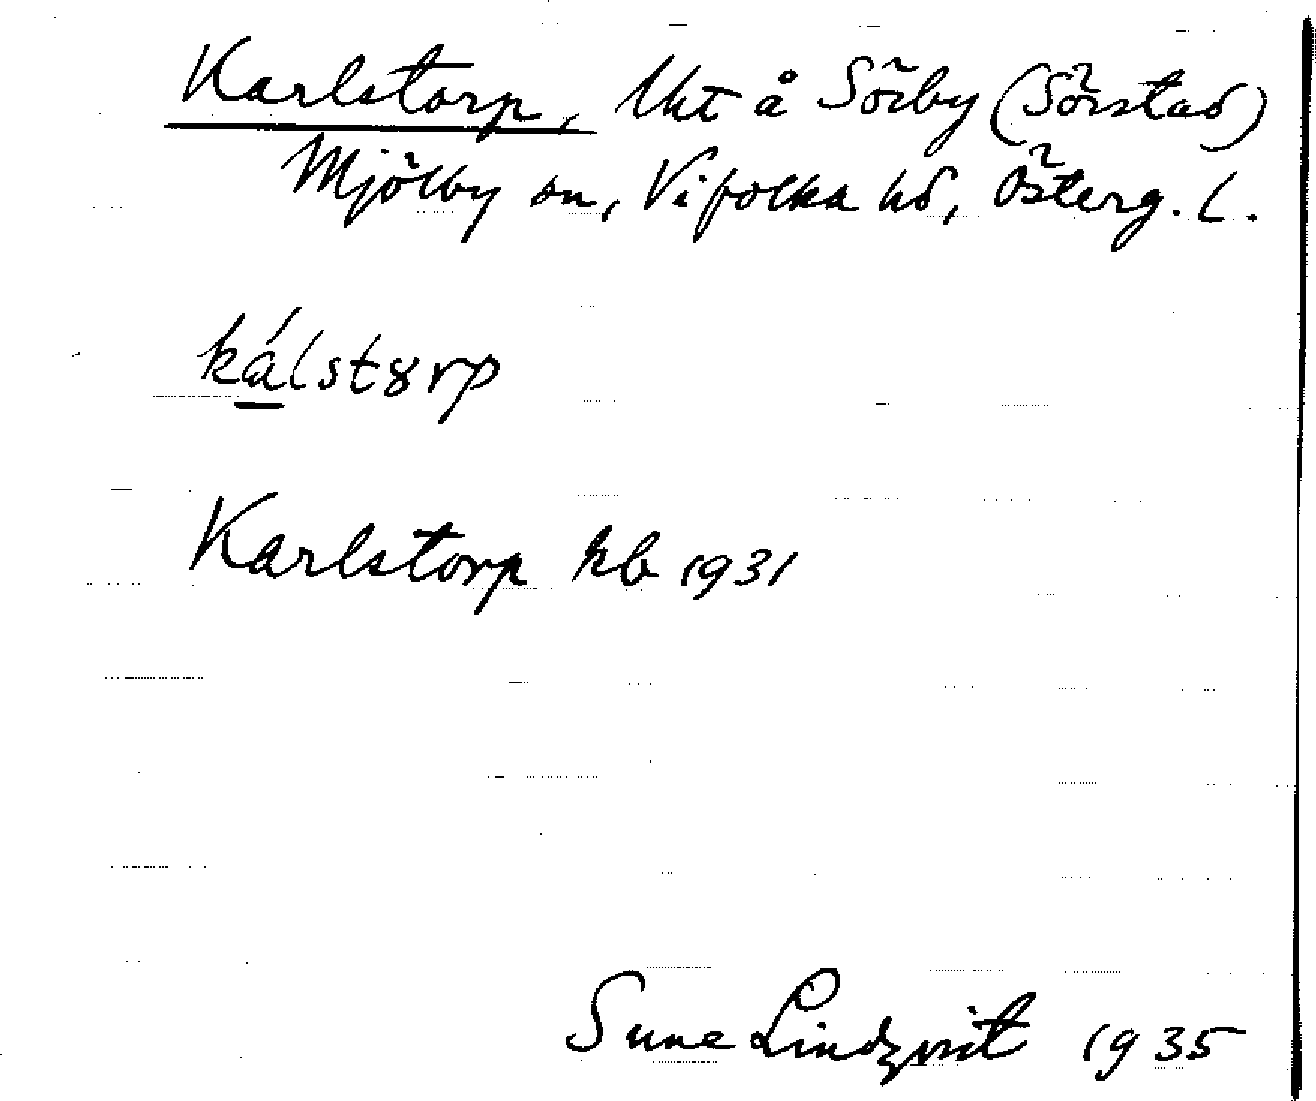 Karlstorp, Ukt å Sörby (Sörstad)
Mjölby sn, Vifolka hd, Österg. l.
kálstȣrp
Karlstorp kb 1931
Sune Lindqvist 1935